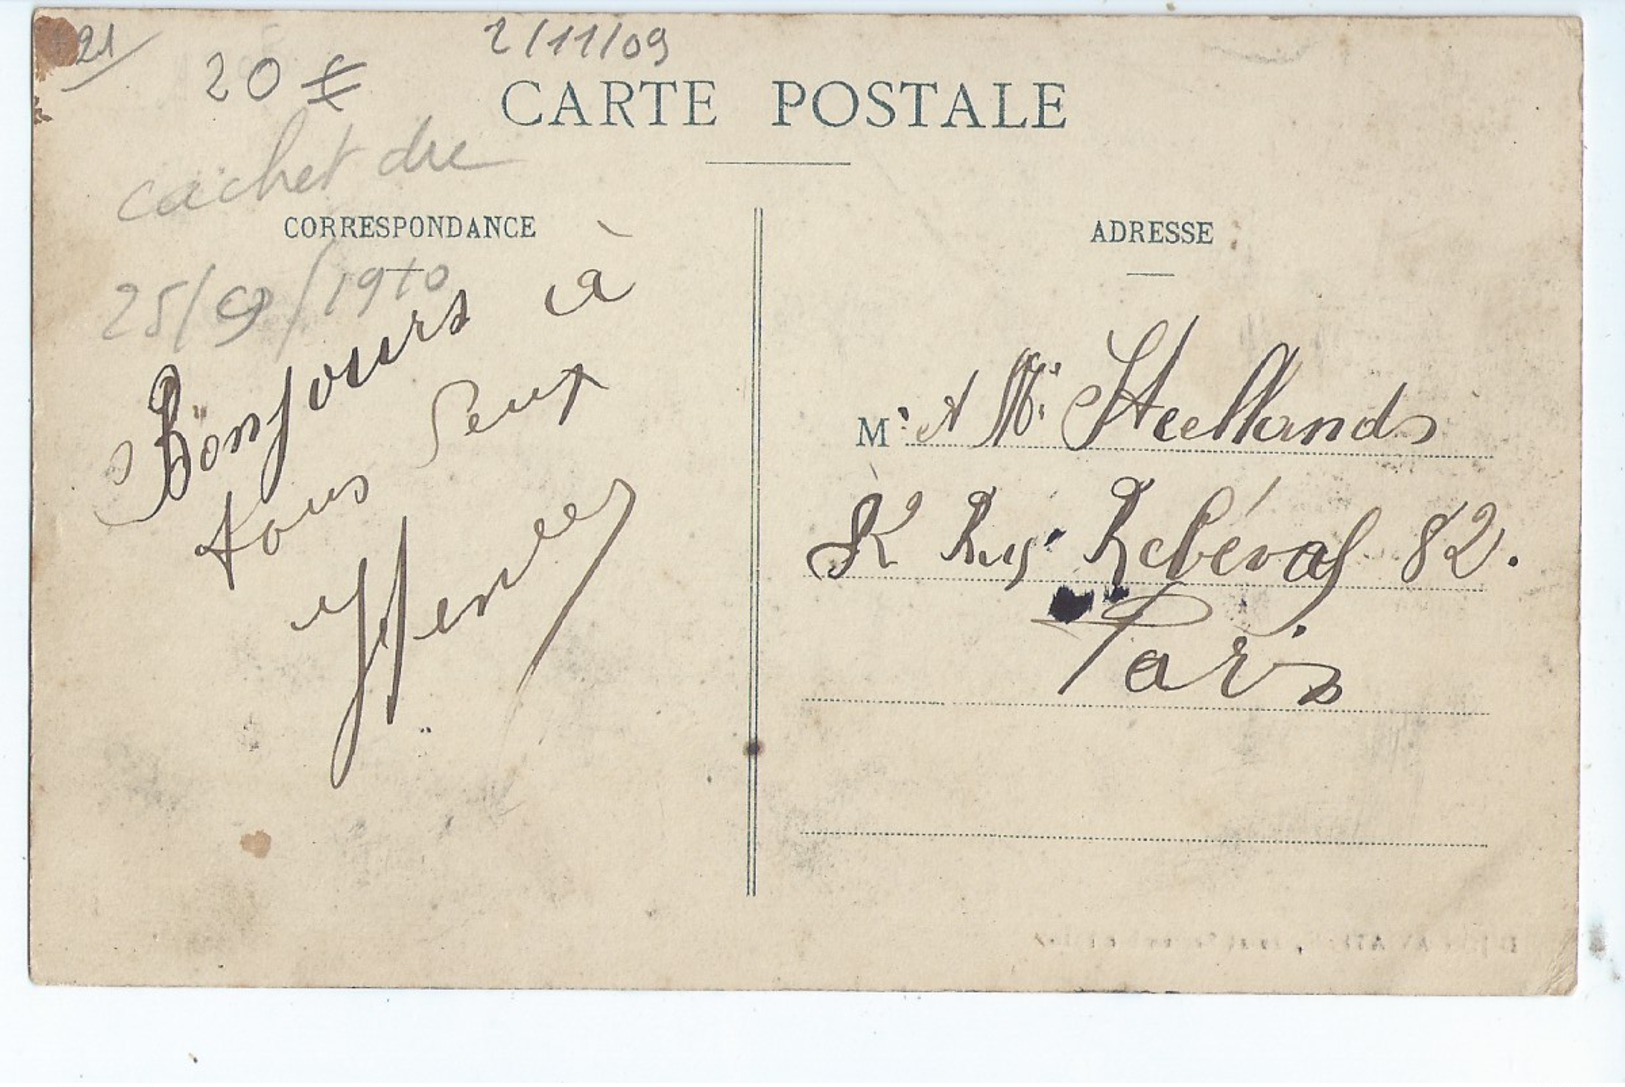 21
20 €
2/11/09
CARTE POSTALE
cachet du
CORRESPONDANCE
25/9/1910
Bonjours à
tous deux
Henri
ADRESSE
M r et Me Steellands
R Rue Rebéval 82.
Paris